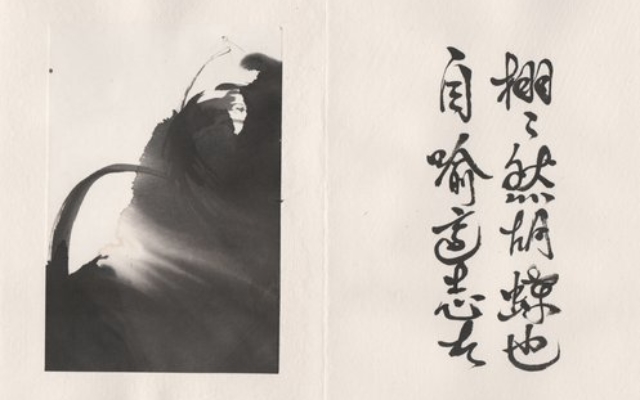 栩〻然胡蝶也
自喻適志与